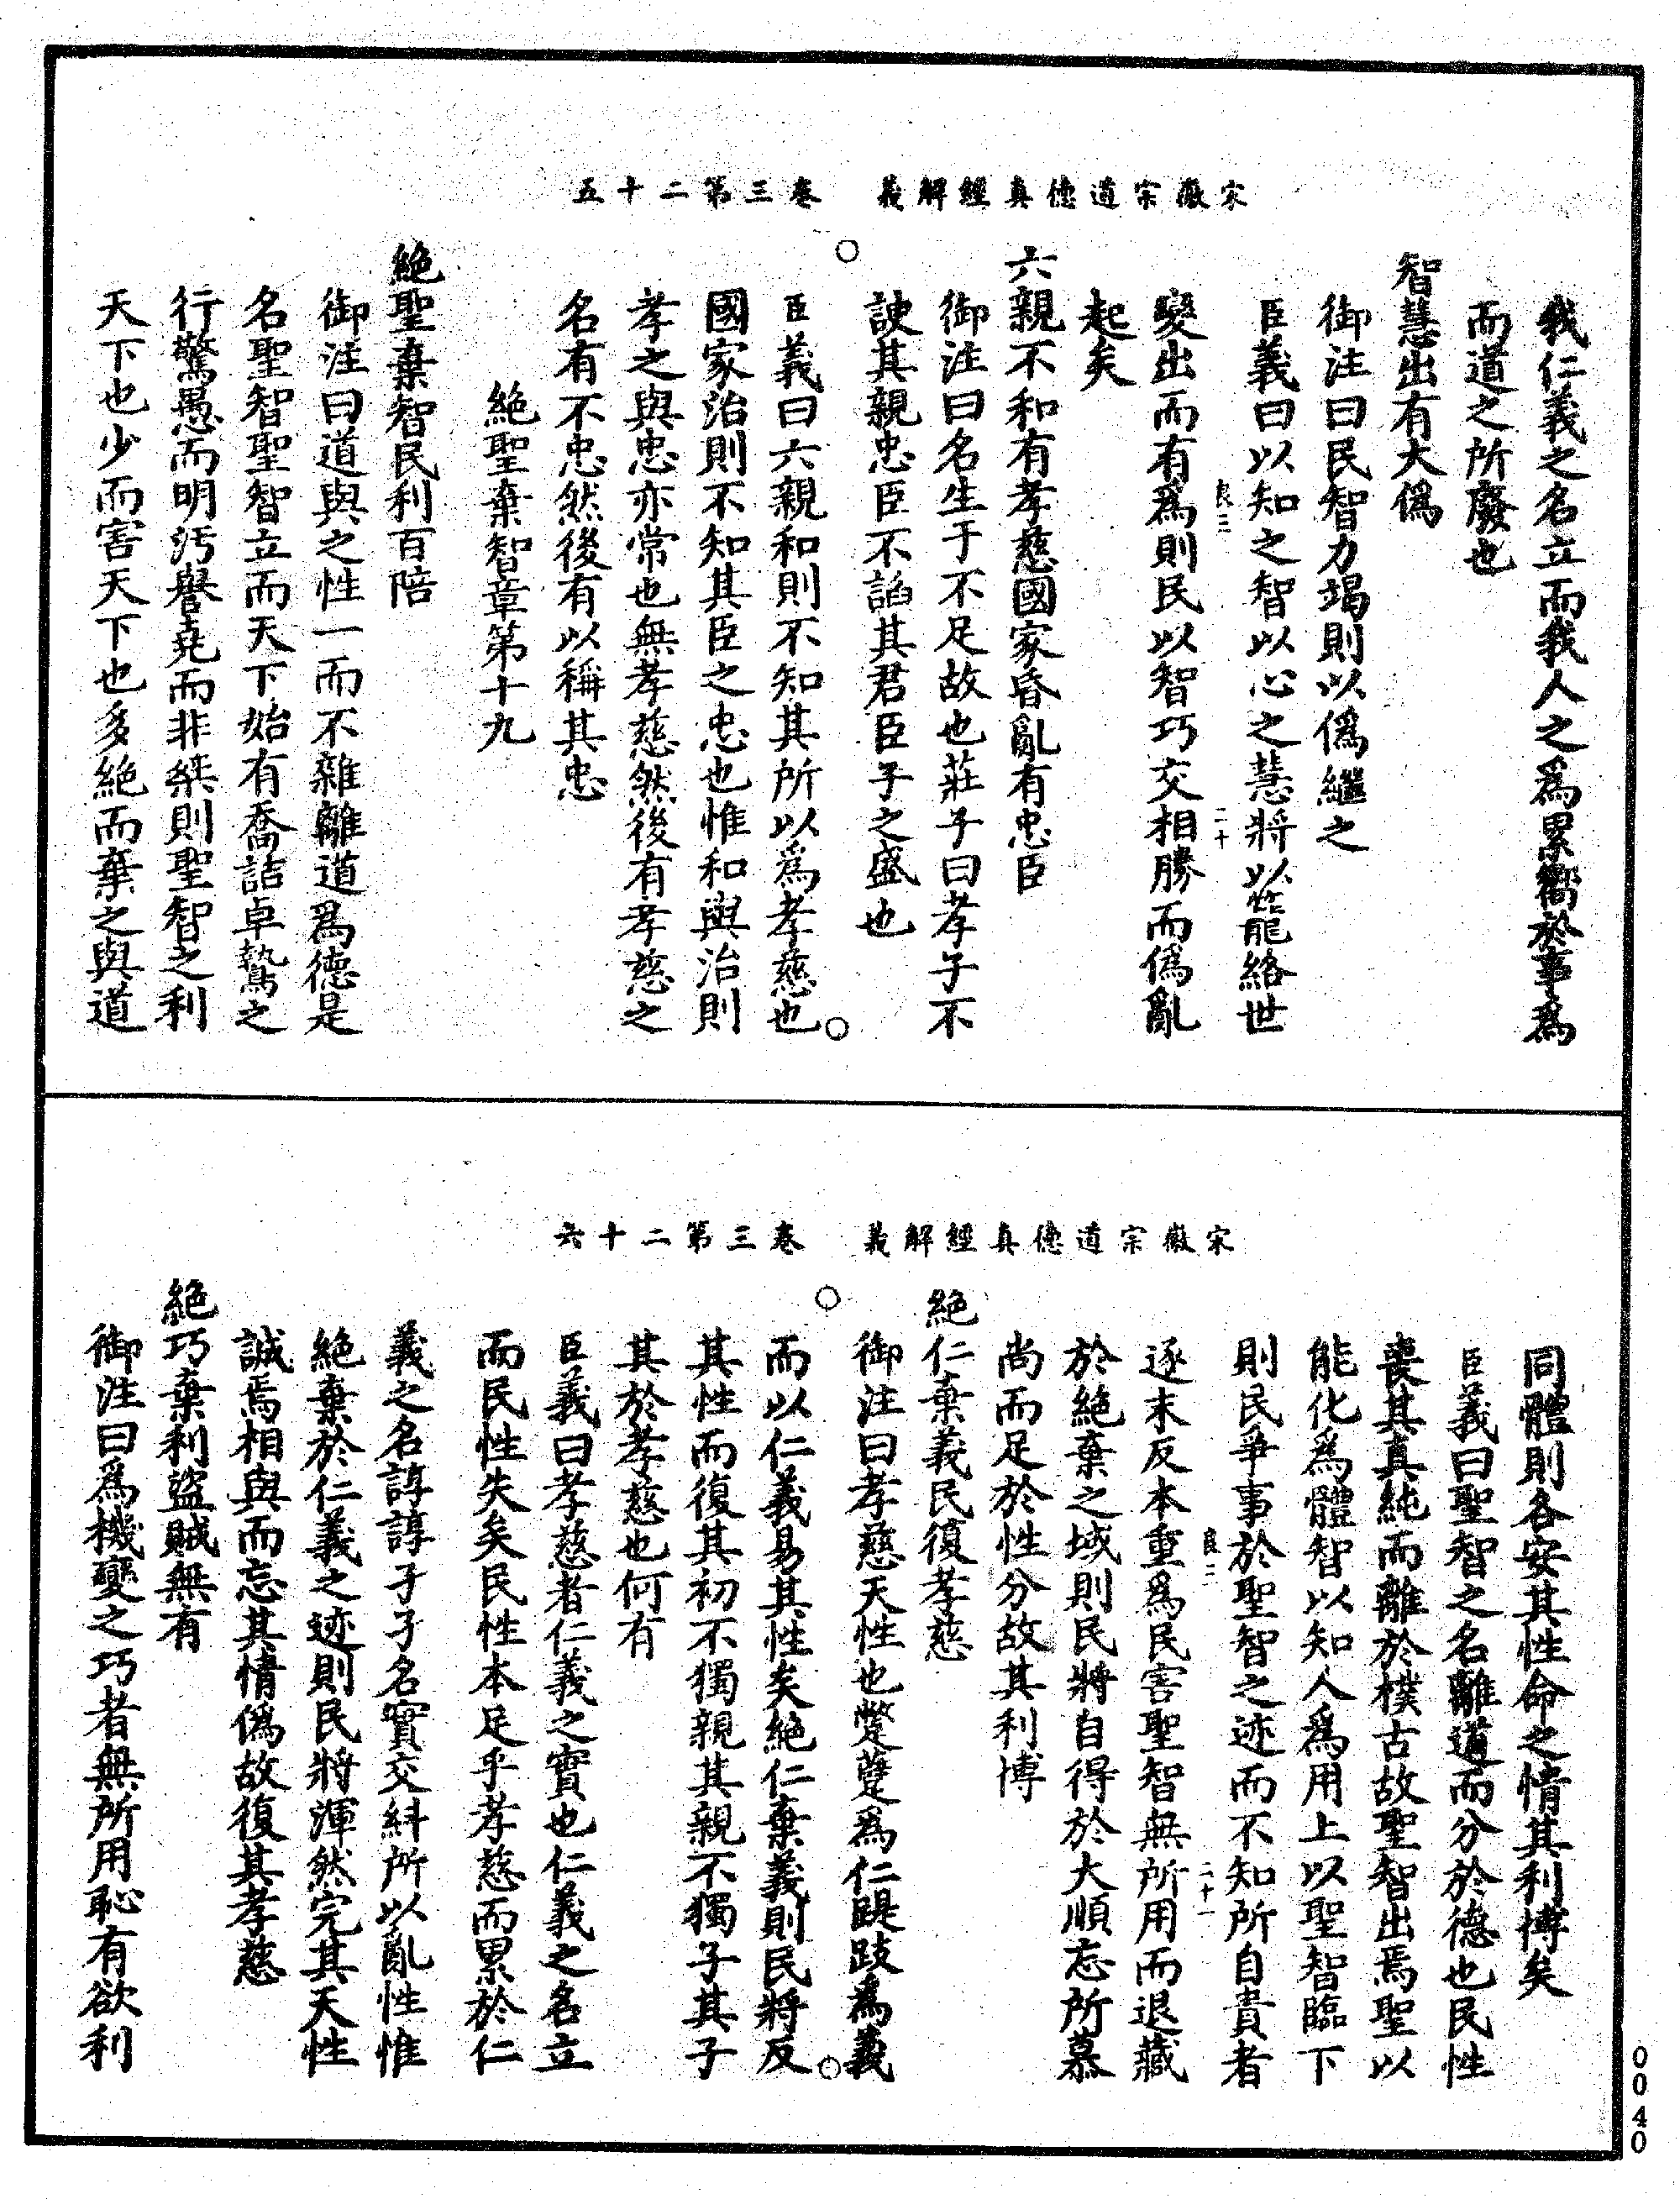 宋徽宗道德真經解義　卷三第二十五
我仁義之名立而我人之爲累衢於事爲
而道之所廢也
智慧出有大僞
御注曰民智力竭則以僞繼之
臣義曰以知之智以心之慧將以籠絡世
良三　二十
變出而有爲則民以智巧交相勝而僞亂
起矣
六親不和有孝慈國家昏亂有忠臣
御注曰名生于不足故也莊子曰孝子不
諛其親忠臣不諂其君臣子之盛也
臣義曰六親和則不知其所以爲孝慈也
國家治則不知其臣之忠也惟和與治則
孝之與忠亦常也無孝慈然後有孝慈之
名有不忠然後有以稱其忠
絕聖棄智章第十九
絕聖棄智民利百陪
御注曰道與之性一而不雜離道爲德是
名聖智聖智立而天下始有喬詰卓鷙之
行驚愚而明汚譽堯而非桀則聖智之利
天下也少而害天下也多絕而棄之與道
宋徽宗道德真經解義　卷三第二十六
同體則各安其性命之情其利博矣
臣義曰聖智之名離道而分於德也民性
喪其真純而離於樸古故聖智出焉聖以
能化爲體智以知人爲用上以聖智臨下
則民爭事於聖智之迹而不知所自貴者
良三　二十一
逐末反本重爲民害聖智無所用而退藏
於絕棄之域則民將自得於大順忘所慕
尚而足於性分故其利博
絕仁棄義民復孝慈
御注曰孝慈天性也蹩躠爲仁踶跂爲義
而以仁義易其性矣絕仁棄義則民將反
其性而復其初不獨親其親不獨子其子
其於孝慈也何有
臣義曰孝慈者仁義之實也仁義之名立
而民性失矣民性本足乎孝慈而累於仁
義之名諄諄孑孑名實交糾所以亂性惟
絕棄於仁義之迹則民將渾然完其天性
誠焉相與而忘其情僞故復其孝慈
絕巧棄利盜賊無有
御注曰爲機變之巧者無所用恥有欲利
0040